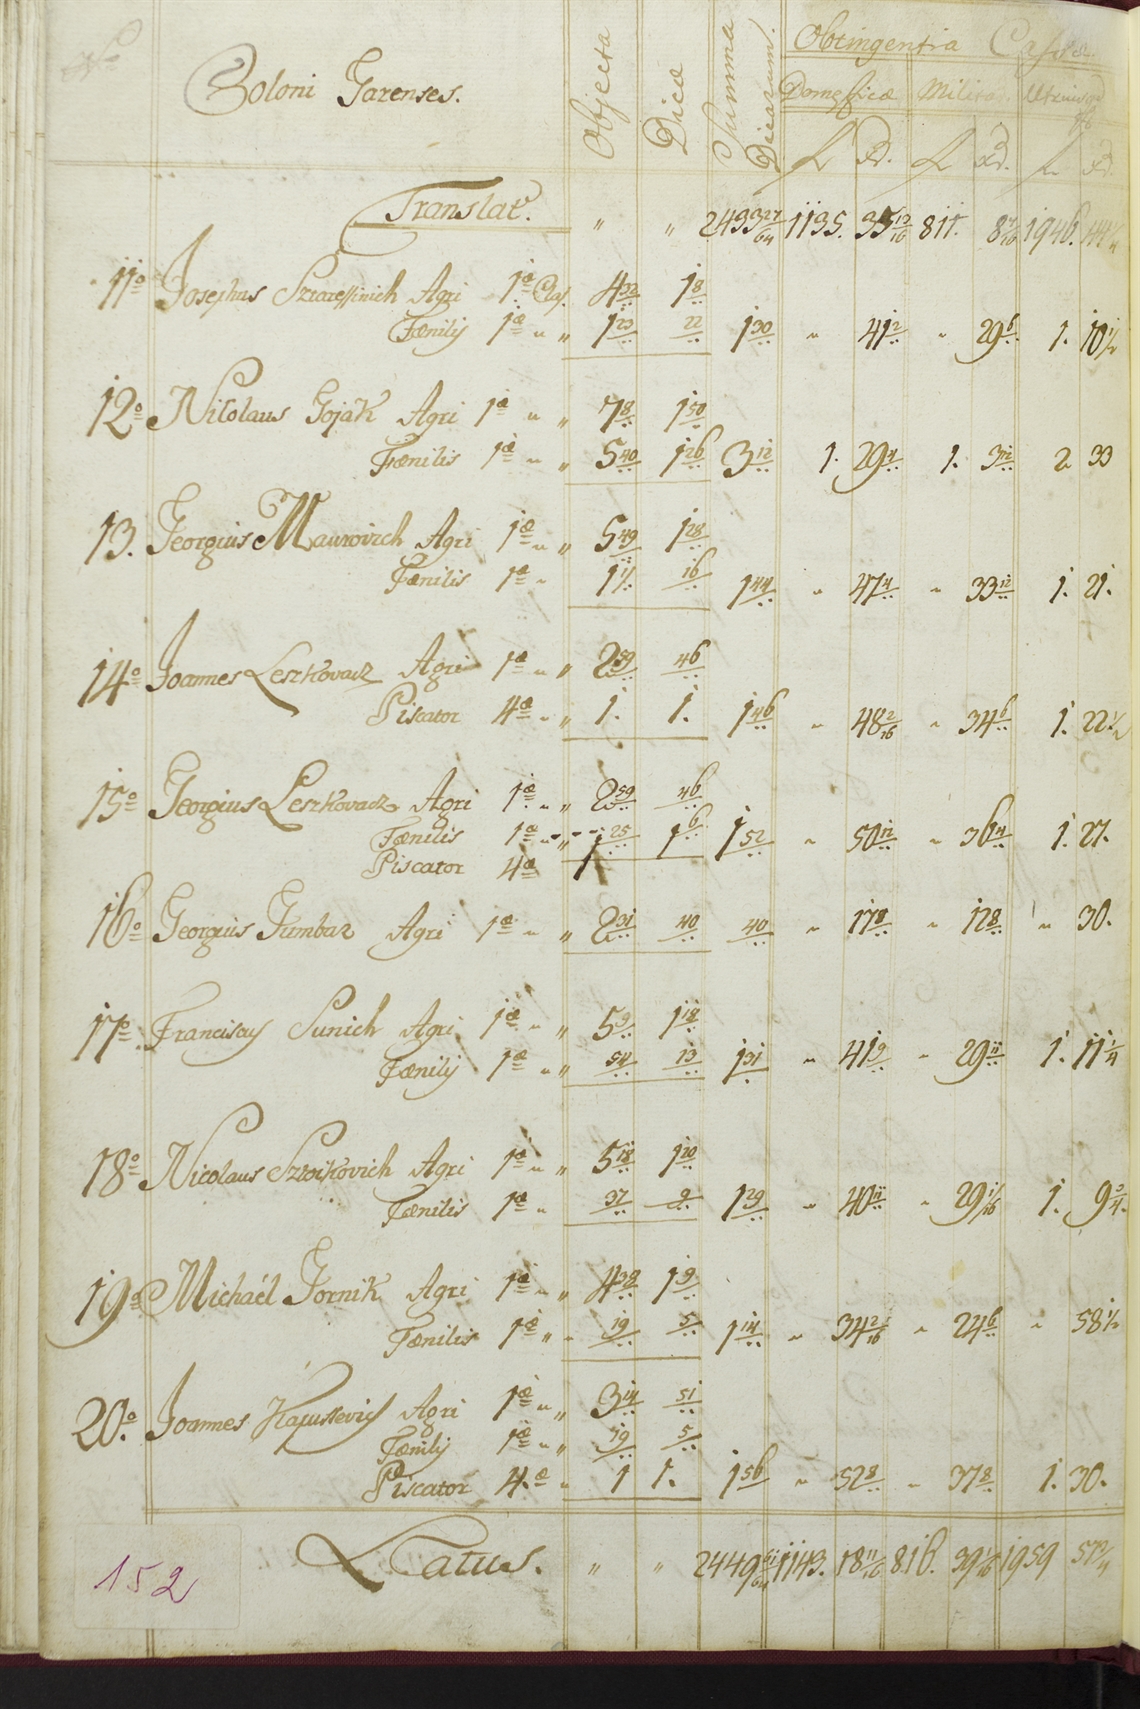 Coloni Garenses. Objecta Dicæ Summa Dicarum. Obtingentia Cassæ
Domesticæ Militar. Utriusq
f. xd. f. xd. f. xd.
Translat. " " 2433 27/64 1135. 35 13/16 811. 8 7/16 1946.
11º Josephus Agri 1æ Clas. 4 32 1 8
Fænilij 1æ " " 1 23 22 1 30 " 41 2 " 29 6 1. 10 1/2
12º Nicolaus Goják Agri 1æ " " 7 8 1 50
Fænilis 1æ " " 5 40 1 26 3 12 1. 29 4 1. 3 12 2 33
13. Georgius Maurovich Agri 1æ " " 5 49 1 28
Fænilis 1æ " 1 11 16 1 44 " 47 4 " 33 12 1. 21.
14º Joannes Leszkovacz Agri 1æ " " 2 59 46
Piscator 4æ " " 1. 1. 1 46 " 48 2/16 " 34 6 1. 22 1/2
15º Georgius Leszkovacz Agri 1æ " " 2 59 46
Fænilis 1æ " " 25 1 6 1 52 " 50 12 " 36 14 1. 27.
Piscator 4æ 1
16º Georgius Gumbaz Agri 1æ " " 2 31 40 40 " 17 8 " 12 8 " 30.
17º Franciscus Sunich Agri 1æ " " 5 9 1 18
Fænilij 1æ " " 54 13 1 31 " 41 9 " 29 11 1. 11 1/4
18º Nicolaus Szvoikovich Agri 1æ " " 5 18 1 20
Fænilis 1æ " 37 9 1 29 " 40 11 " 29 1/16 1. 9 3/4
19º Michaël Gornik Agri 1æ " " 4 38 1 9
Fænilis 1æ " " 19 5 1 14 " 34 2/16 " 24 6 " 58 1/2
20º Joannes Agri 1æ " " 3 14 51
Fænilij 1æ " " 19 5
Piscator 4.æ " 1 1. 1 56 " 52 8 " 37 8 1. 30.
Latus. " " 2449 61/64 1143. 18 11/16 816. 39 1/16 1959
152